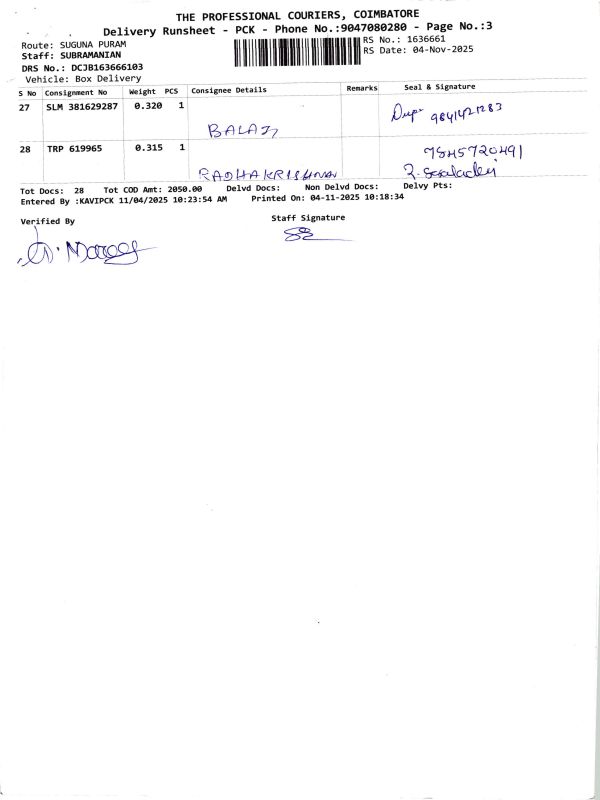 THE PROFESSIONAL COURIERS, COIMBATORE
Delivery Runsheet - PCK - Phone No.:9047080280 - Page No.:3
Route: SUGUNA PURAM
RS No.: 1636661
Staff: SUBRAMANIAN
RS Date: 04-Nov-2025
DRS No.: DCJB163666103
Vehicle: Box Delivery
S No Consignment No Weight PCS Consignee Details Remarks Seal & Signature
27 SLM 381629287 0.320 1
BALAJI
28 TRP 619965 0.315 1 7845720491
RADHAKRISHNAN
Tot Docs: 28 Tot COD Amt: 2050.00 Delvd Docs: Non Delvd Docs: Delvy Pts:
Entered By :KAVIPCK 11/04/2025 10:23:54 AM Printed On: 04-11-2025 10:18:34
Verified By Staff Signature